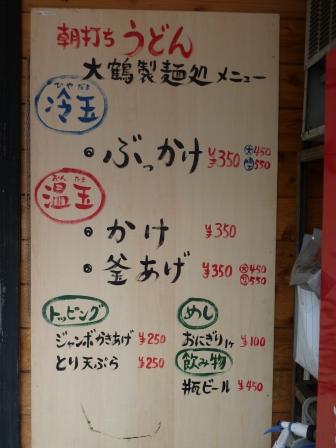 朝打ち うどん
大鶴製麺処 メニュー
ひやだま
冷玉
ぶっかけ ¥350 大450
550
おんたま
温玉
かけ ¥350
釜あげ ¥350 大450
550
トッピング
ジャンボかきあげ ¥250
とり天ぷら ¥250
めし
おにぎり1ケ ¥100
飲み物
瓶ビール ¥450